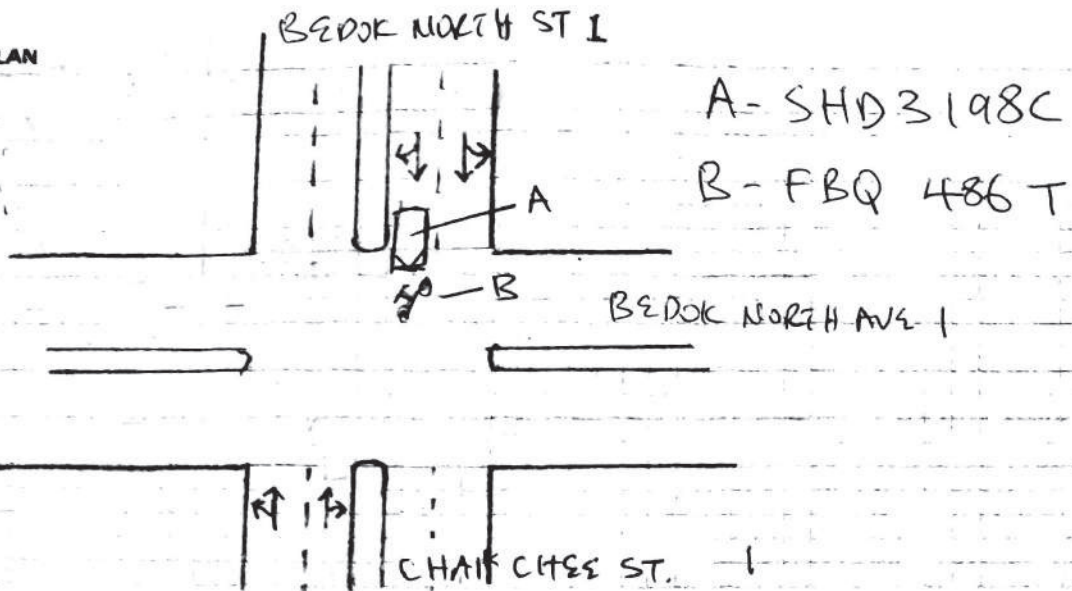 BEDOK NORTH ST 1
LAN
A - SHD3198C
B - FBQ 486 T
A
B
BEDOK NORTH AVE 1
CHAI CHEE ST. 1